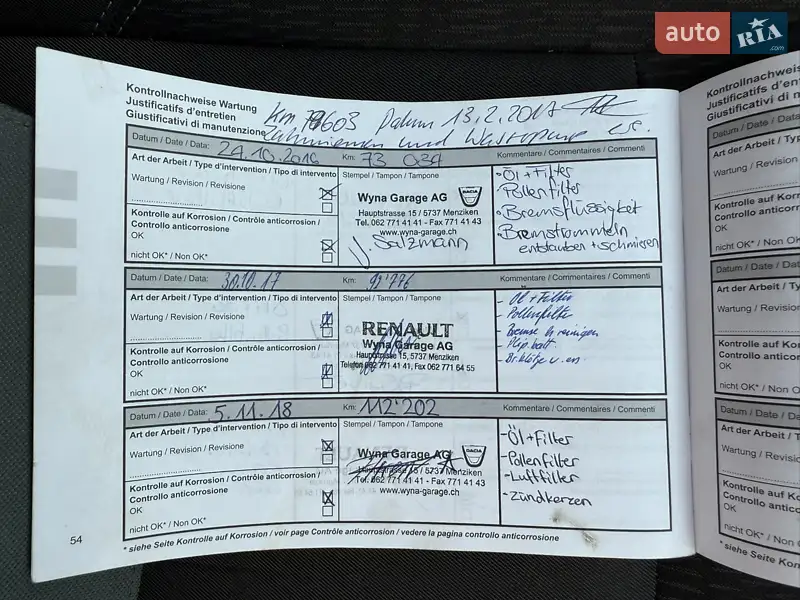 auto RIA .com
Kontrollnachweise Wartung
Justificatifs d'entretien
Giustificativi di manutenzione
Km 79603 Datum 13.2.2017
Zahnriemen und Wasserpumpe
Datum / Date / Data: 24.10.2016 Km: 73 034 Kommentare / Commentaires / Commenti
Art der Arbeit / Type d'intervention / Tipo di intervento Stempel / Tampon / Tampone
Wartung / Revision / Revisione
Kontrolle auf Korrosion / Contrôle anticorrosion /
Controllo anticorrosione
OK
nicht OK* / Non OK*
Wyna Garage AG
DACIA
Hauptstrasse 15 / 5737 Menziken
Tel. 062 771 41 41 - Fax 771 41 43
www.wyna-garage.ch
J. Salzmann
• Öl + Filter
• Pollenfilter
• Bremsflüssigkeit
• Bremstrommeln
entstauben + schmieren
Datum / Date / Data: 30.10.17 Km: 92'776 Kommentare / Commentaires / Commenti
Art der Arbeit / Type d'intervention / Tipo di intervento Stempel / Tampon / Tampone
Wartung / Revision / Revisione
Kontrolle auf Korrosion / Contrôle anticorrosion /
Controllo anticorrosione
OK
nicht OK* / Non OK*
RENAULT
Wyna Garage AG
Hauptstrasse 15, 5737 Menziken
Telefon 062 771 41 41, Fax 062 771 64 55
- Öl + Filter
- Pollenfilter
- Bremse h reinigen
- Br.klötze v. en.
Datum / Date / Data: 5.11.18 Km: 112'202 Kommentare / Commentaires / Commenti
Art der Arbeit / Type d'intervention / Tipo di intervento Stempel / Tampon / Tampone
Wartung / Revision / Revisione
Kontrolle auf Korrosion / Contrôle anticorrosion /
Controllo anticorrosione
OK
nicht OK* / Non OK*
Wyna Garage AG
DACIA
Hauptstrasse 15 / 5737 Menziken
Tel. 062 771 41 41 - Fax 771 41 43
www.wyna-garage.ch
- Öl + Filter
- Pollenfilter
- Luftfilter
- Zündkerzen
54
* siehe Seite Kontrolle auf Korrosion / voir page Contrôle anticorrosion / vedere la pagina controllo anticorrosione
Kontrollnachweise
Justificatifs d'entre
Giustificativi di ma
Datum / Date / Data:
Art der Arbeit / Typ
Wartung / Revision /
Kontrolle auf Korro
Controllo anticorros
OK
nicht OK* / Non OK*
Datum / Date / Data:
Art der Arbeit / Typ
Wartung / Revision /
Kontrolle auf Kor
Controllo anticorro
OK
nicht OK* / Non O
Datum / Date / Data
Art der Arbeit / Ty
Wartung / Revision
Kontrolle auf Ko
Controllo anticor
OK
nicht OK* / Non
* siehe Seite Kon